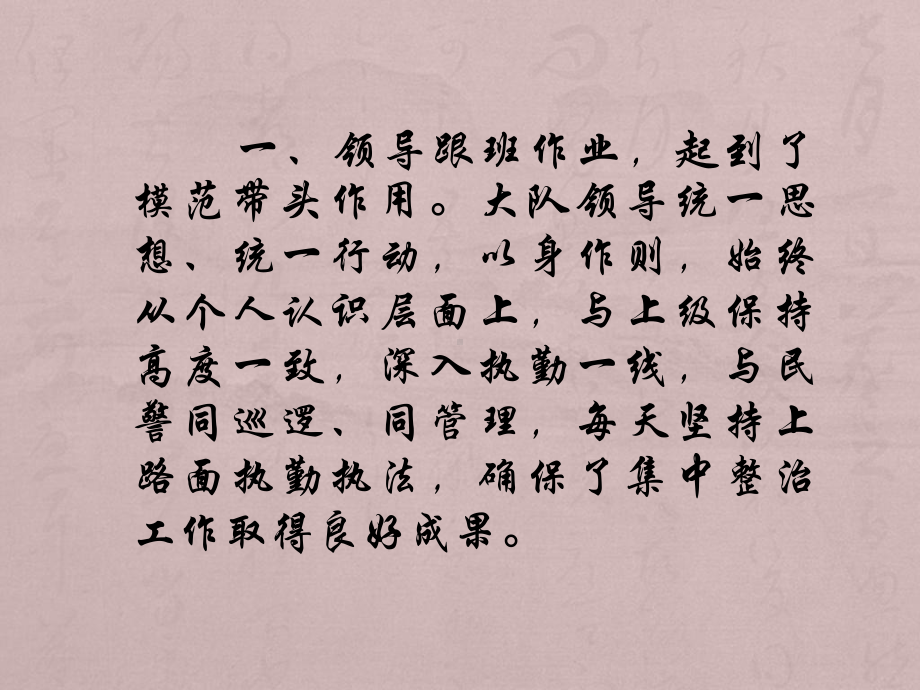 一、领导跟班作业，起到了
模范带头作用。大队领导统一思
想、统一行动，以身作则，始终
从个人认识层面上，与上级保持
高度一致，深入执勤一线，与民
警同巡逻、同管理，每天坚持上
路面执勤执法，确保了集中整治
工作取得良好成果。